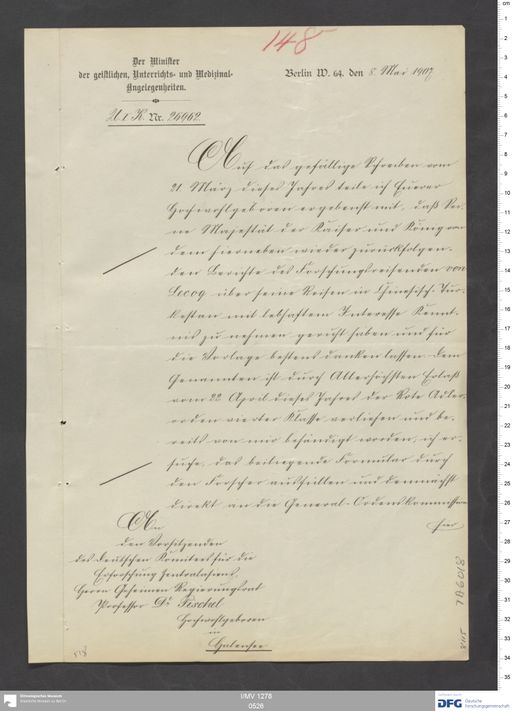 148
Der Minister
der geistlichen, Unterrichts- und Medizinal-
Angelegenheiten.
U I K. Nr. 26962.
Berlin W. 64. den 8. Mai 1907
Auf das gefällige Schreiben vom
21 März dieses Jahres teile ich Euerer
Hochwohlgeboren ergebenst mit, daß Sei-
ne Majestät der Kaiser und König von
dem hierneben wieder zurückfolgen-
den Berichte des Forschungsreisenden von
Lecoq über seine Reisen in Chinesisch-Tur-
kestan mit lebhaftem Interesse Kennt-
nis zu nehmen geruht haben und für
die Vorlage bestens danken lassen. Dem
Genannten ist durch Allerhöchsten Erlaß
vom 22 April dieses Jahres der Rote Adler-
orden vierter Klasse verliehen und be-
reits von mir behändigt worden, ich er-
suche, das beiliegende Formular durch
den Forscher ausfüllen und demnächst
direkt an die General-Ordenskommission
hier
An
den Vorsitzenden
des deutschen Komitees für die
Erforschung Zentralasiens
Herrn Geheimen Regierungsrat
Professor Dr. Pischel
Hochwohlgeboren
in
Halensee
TA 6018
I/MV 1276
0526
Ethnologisches Museum
Staatliche Museen zu Berlin
DFG Deutsche
Forschungsgemeinschaft